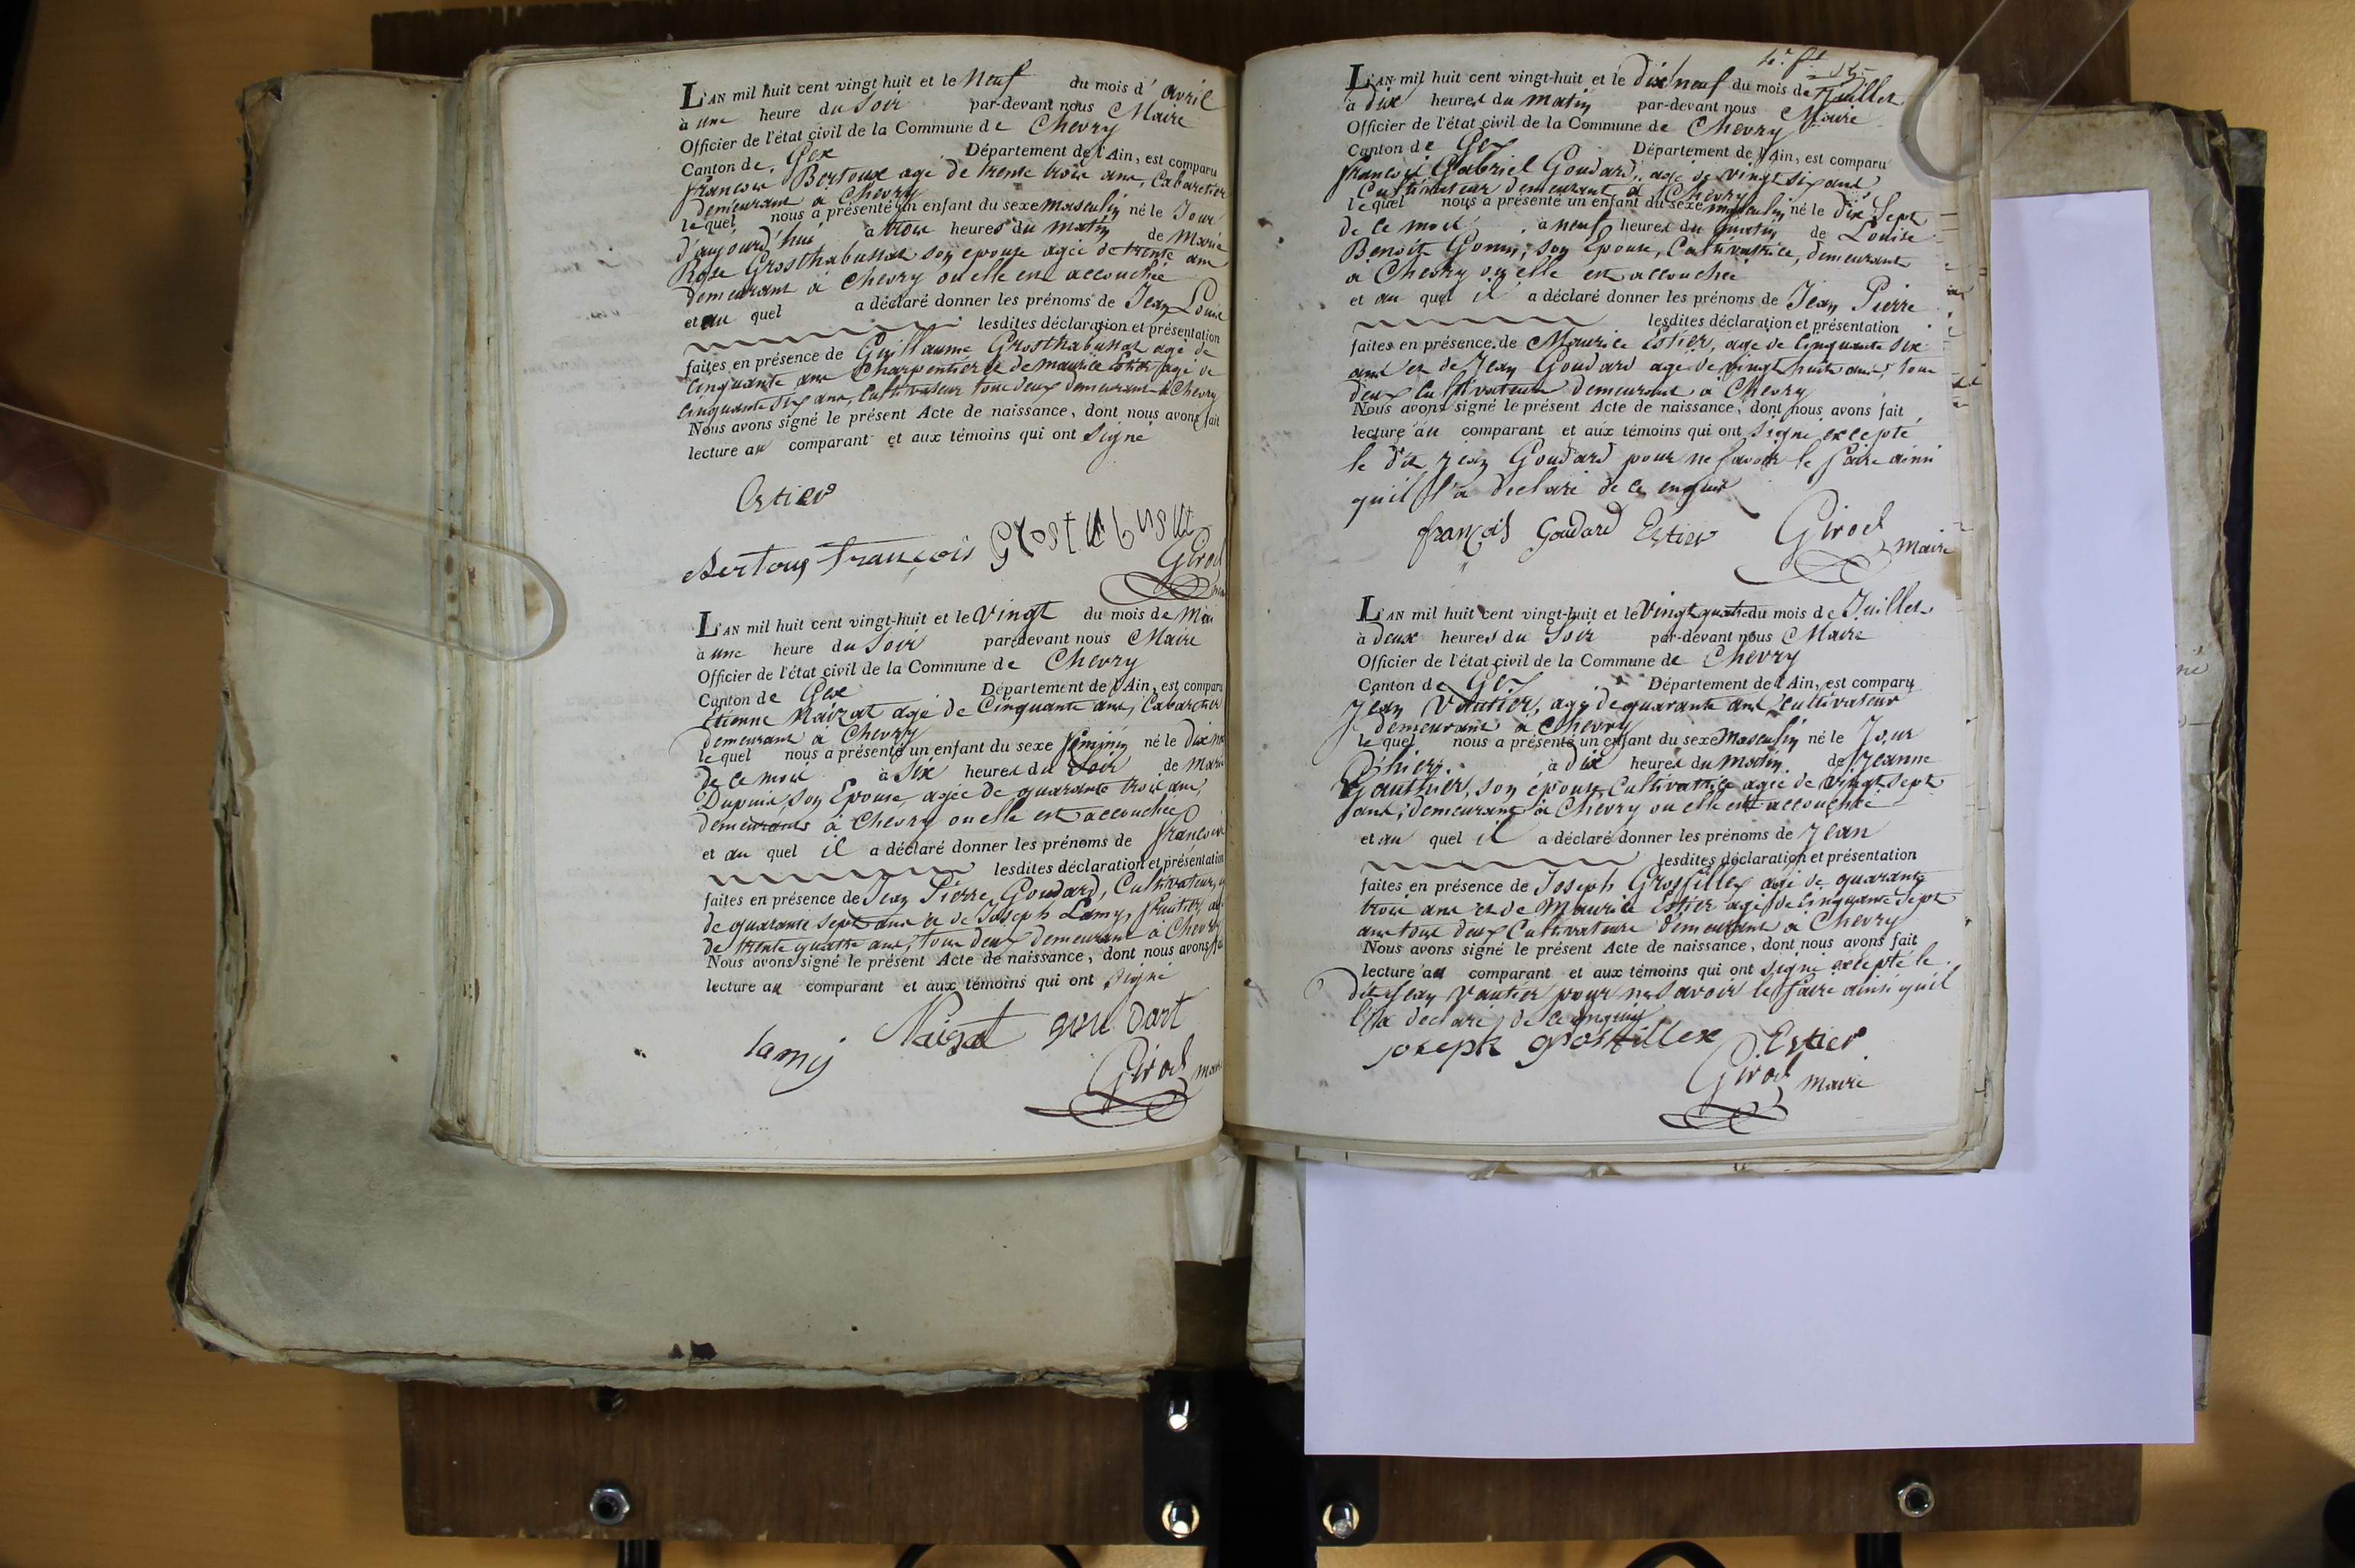 L'AN mil huit cent vingt huit et le Neuf du mois d' avril
à une heure du Soir par-devant nous Maire
Officier de l'état civil de la Commune de Chevry
Canton de Gex Département de l'Ain, est comparu
françois Bertoux agé de trente trois ans, Cabaretier
demeurant a Chevry
lequel nous a présenté un enfant du sexe masculin né le Jour
d'aujourd'hui à trois heures du matin de Marie
Rose Grosthabussat son epouse agée de trente ans
demeurant à Chevry ou elle est accouchée
et au quel a déclaré donner les prénoms de Jean Louis
lesdites déclaration et présentation
faites en présence de Guillaume Grosthabussat agé de
Cinquante ans Charpentier et de maurice Estier agé de
cinquante six ans, Cultivateur tous deux demeurant à Chevry
Nous avons signé le présent Acte de naissance, dont nous avons fait
lecture au comparant et aux témoins qui ont Signé
Estier
Bertoux françois Grostabusat
Girod
L'AN mil huit cent vingt-huit et le Vingt du mois de Mai
à une heure du Soir par-devant nous Maire
Officier de l'état civil de la Commune de Chevry
Canton de Gex Département de l'Ain, est comparu
Etienne Naizat agé de Cinquante ans, Cabaretier
demeurant à Chevry
lequel nous a présenté un enfant du sexe féminin né le dix
de ce mois à Six heures du Soir de Marie
Dupuis son Epouse, agée de quarante trois ans,
demeurant à Chevry ou elle est accouchée
et au quel il a déclaré donner les prénoms de françoise
lesdites déclaration et présentation
faites en présence de Jean Pierre Goudard, Cultivateur,
de quarante sept ans et de Joseph Lamy, fruitier,
de trente quatre ans, tous deux demeurant à Chevry
Nous avons signé le présent Acte de naissance, dont nous avons
lecture au comparant et aux témoins qui ont Signé
lamy Naizat goudart
Girod maire
L'AN mil huit cent vingt-huit et le dix neuf du mois de Juillet
à dix heures du matin par-devant nous Maire
Officier de l'état civil de la Commune de Chevry
Canton de Gex Département de l'Ain, est comparu
françois Gabriel Goudard, agé de vingt six ans
Cultivateur demeurant à Chevry
lequel nous a présenté un enfant du sexe masculin né le dix Sept
de ce mois à neuf heures du matin de Louise
Benoite Gonin, son Epouse, Cultivatrice, demeurant
a Chevry ou elle est accouchée
et au quel il a déclaré donner les prénoms de Jean Pierre
lesdites déclaration et présentation
faites en présence de Maurice Estier, agé de Cinquante six
ans et de Jean Goudard agé de vingt huit ans, tous
deux cultivateurs demeurant à Chevry
Nous avons signé le présent Acte de naissance, dont nous avons fait
lecture au comparant et aux témoins qui ont Signé excepté
le dit Jean Goudard pour ne savoir le faire ainsi
qu'il l'a déclaré de ce enquis
françois Goudard Estier Girod maire
L'AN mil huit cent vingt-huit et le Vingt quatre du mois de Juillet
à deux heures du Soir par-devant nous Maire
Officier de l'état civil de la Commune de Chevry
Canton de Gex Département de l'Ain, est comparu
Jean Vautier, agé de quarante ans Cultivateur
demeurant à Chevry
lequel nous a présenté un enfant du sexe Masculin né le Jour
d'hier à dix heures du matin de Jeanne
Gauthier, son épouse Cultivatrice agée de vingt sept
ans, demeurant à Chevry ou elle est accouchée
et au quel il a déclaré donner les prénoms de Jean
lesdites déclaration et présentation
faites en présence de Joseph Grosfillex agé de quarante
trois ans et de Maurice Estier agé de cinquante Sept
ans tous deux Cultivateurs demeurant à Chevry
Nous avons signé le présent Acte de naissance, dont nous avons fait
lecture au comparant et aux témoins qui ont Signé excepté le
dit Jean Vautier pour ne savoir le faire ainsi qu'il
l'a déclaré de ce enquis
joseph grosfillex Estier
Girod maire